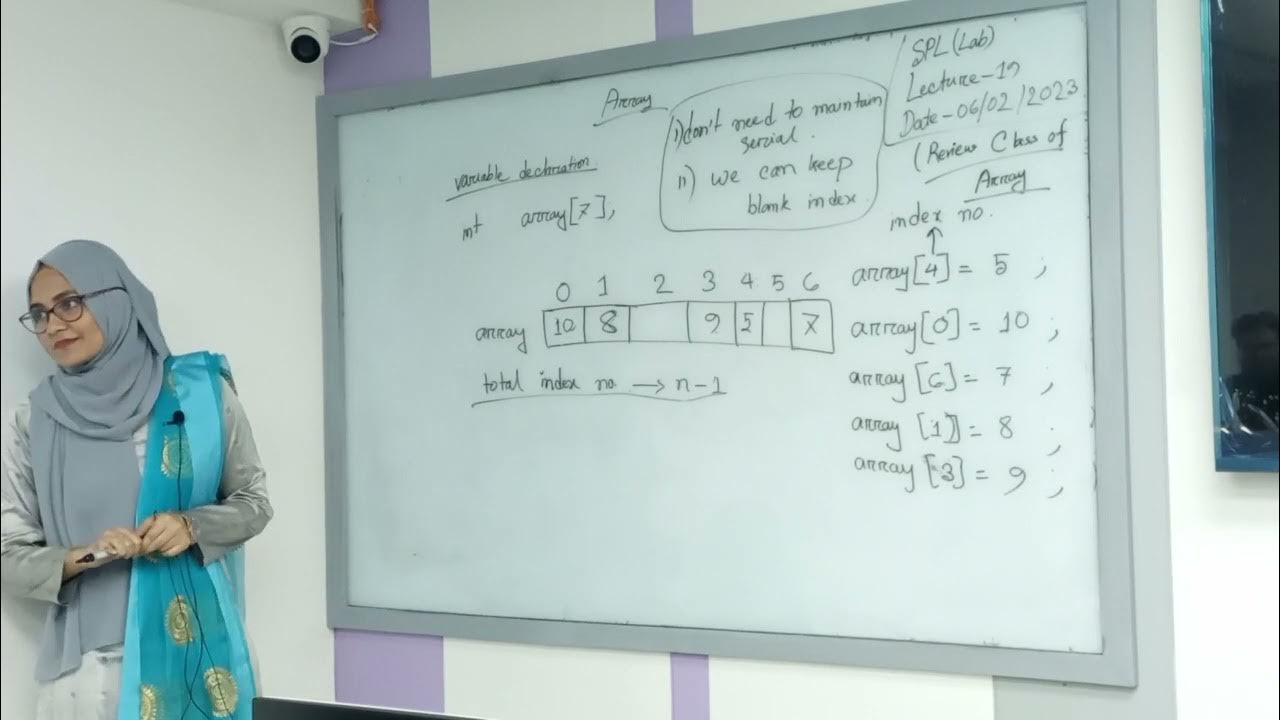 Array
i) don't need to maintain
serial.
ii) we can keep
blank index.
SPL (Lab)
Lecture-19
Date-06/02/2023
(Review Class of
Array
variable declration
int array[7];
0 1 2 3 4 5 6
array 10 8 9 5 7
total index no. → n-1
index no.
↑
array[4] = 5 ;
array[0] = 10 ;
array[6] = 7 ;
array [1] = 8 ;
array [3] = 9 ;